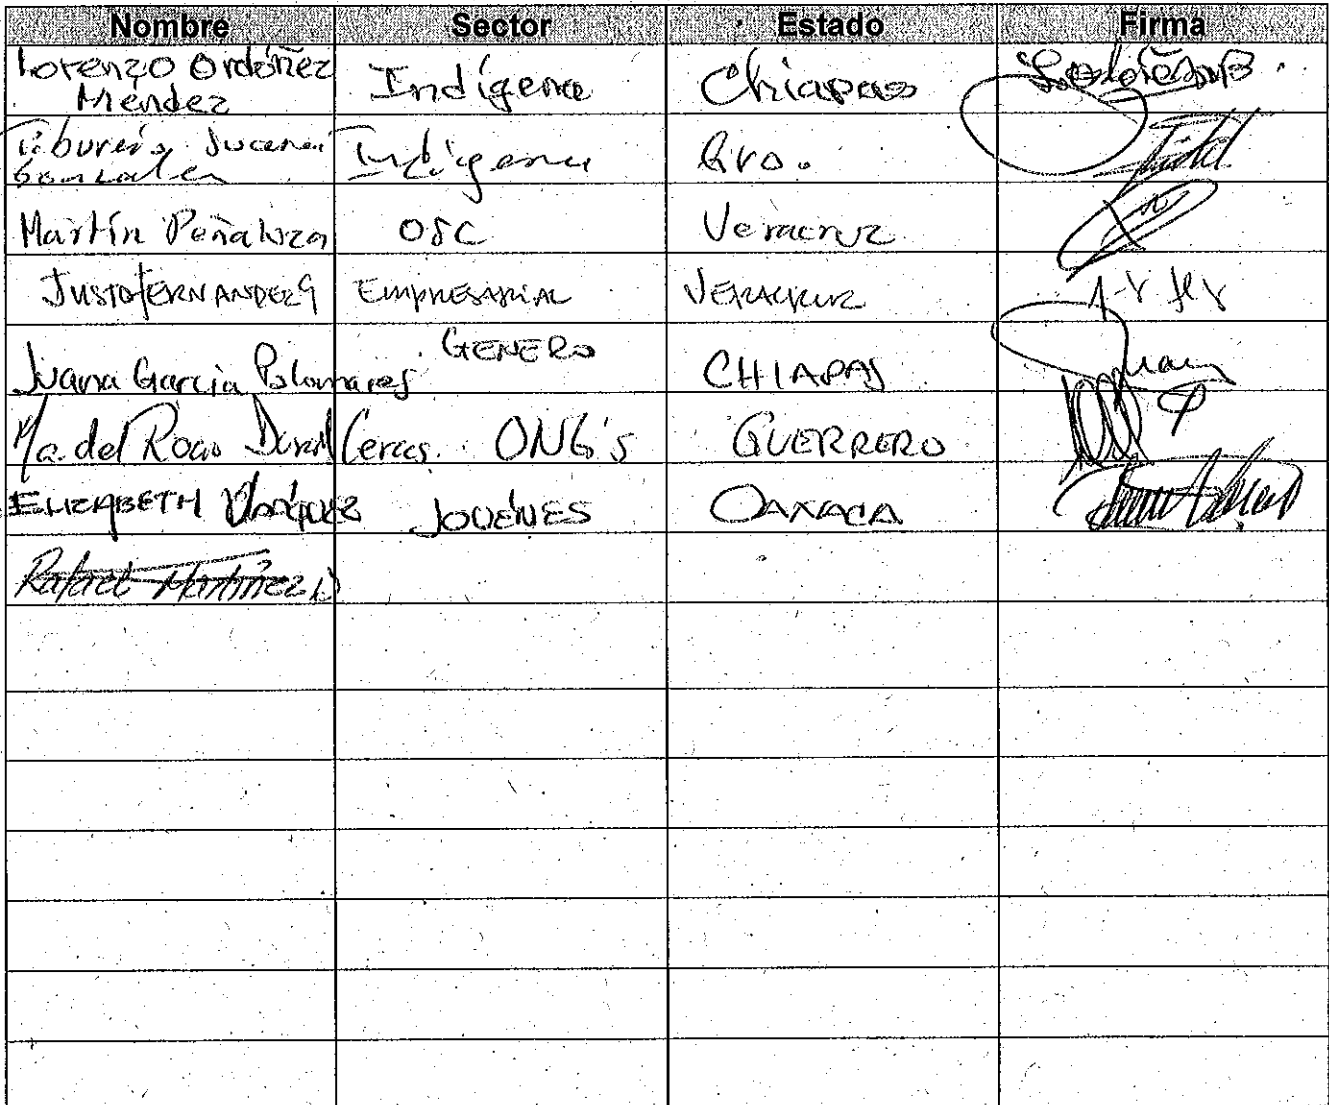 Nombre Sector Estado Firma
Lorenzo Ordóñez
Méndez Indígena Chiapas
Tiburcio
González Indígena Gro.
Martín Peñaloza OSC Veracruz
JUSTO FERNANDEZ G EMPRESARIAL VERACRUZ
Juana García Palomares GENERO CHIAPAS
Ma. del Rocío ONG's GUERRERO
ELIZABETH JOVENES OAXACA
Rafael Martínez